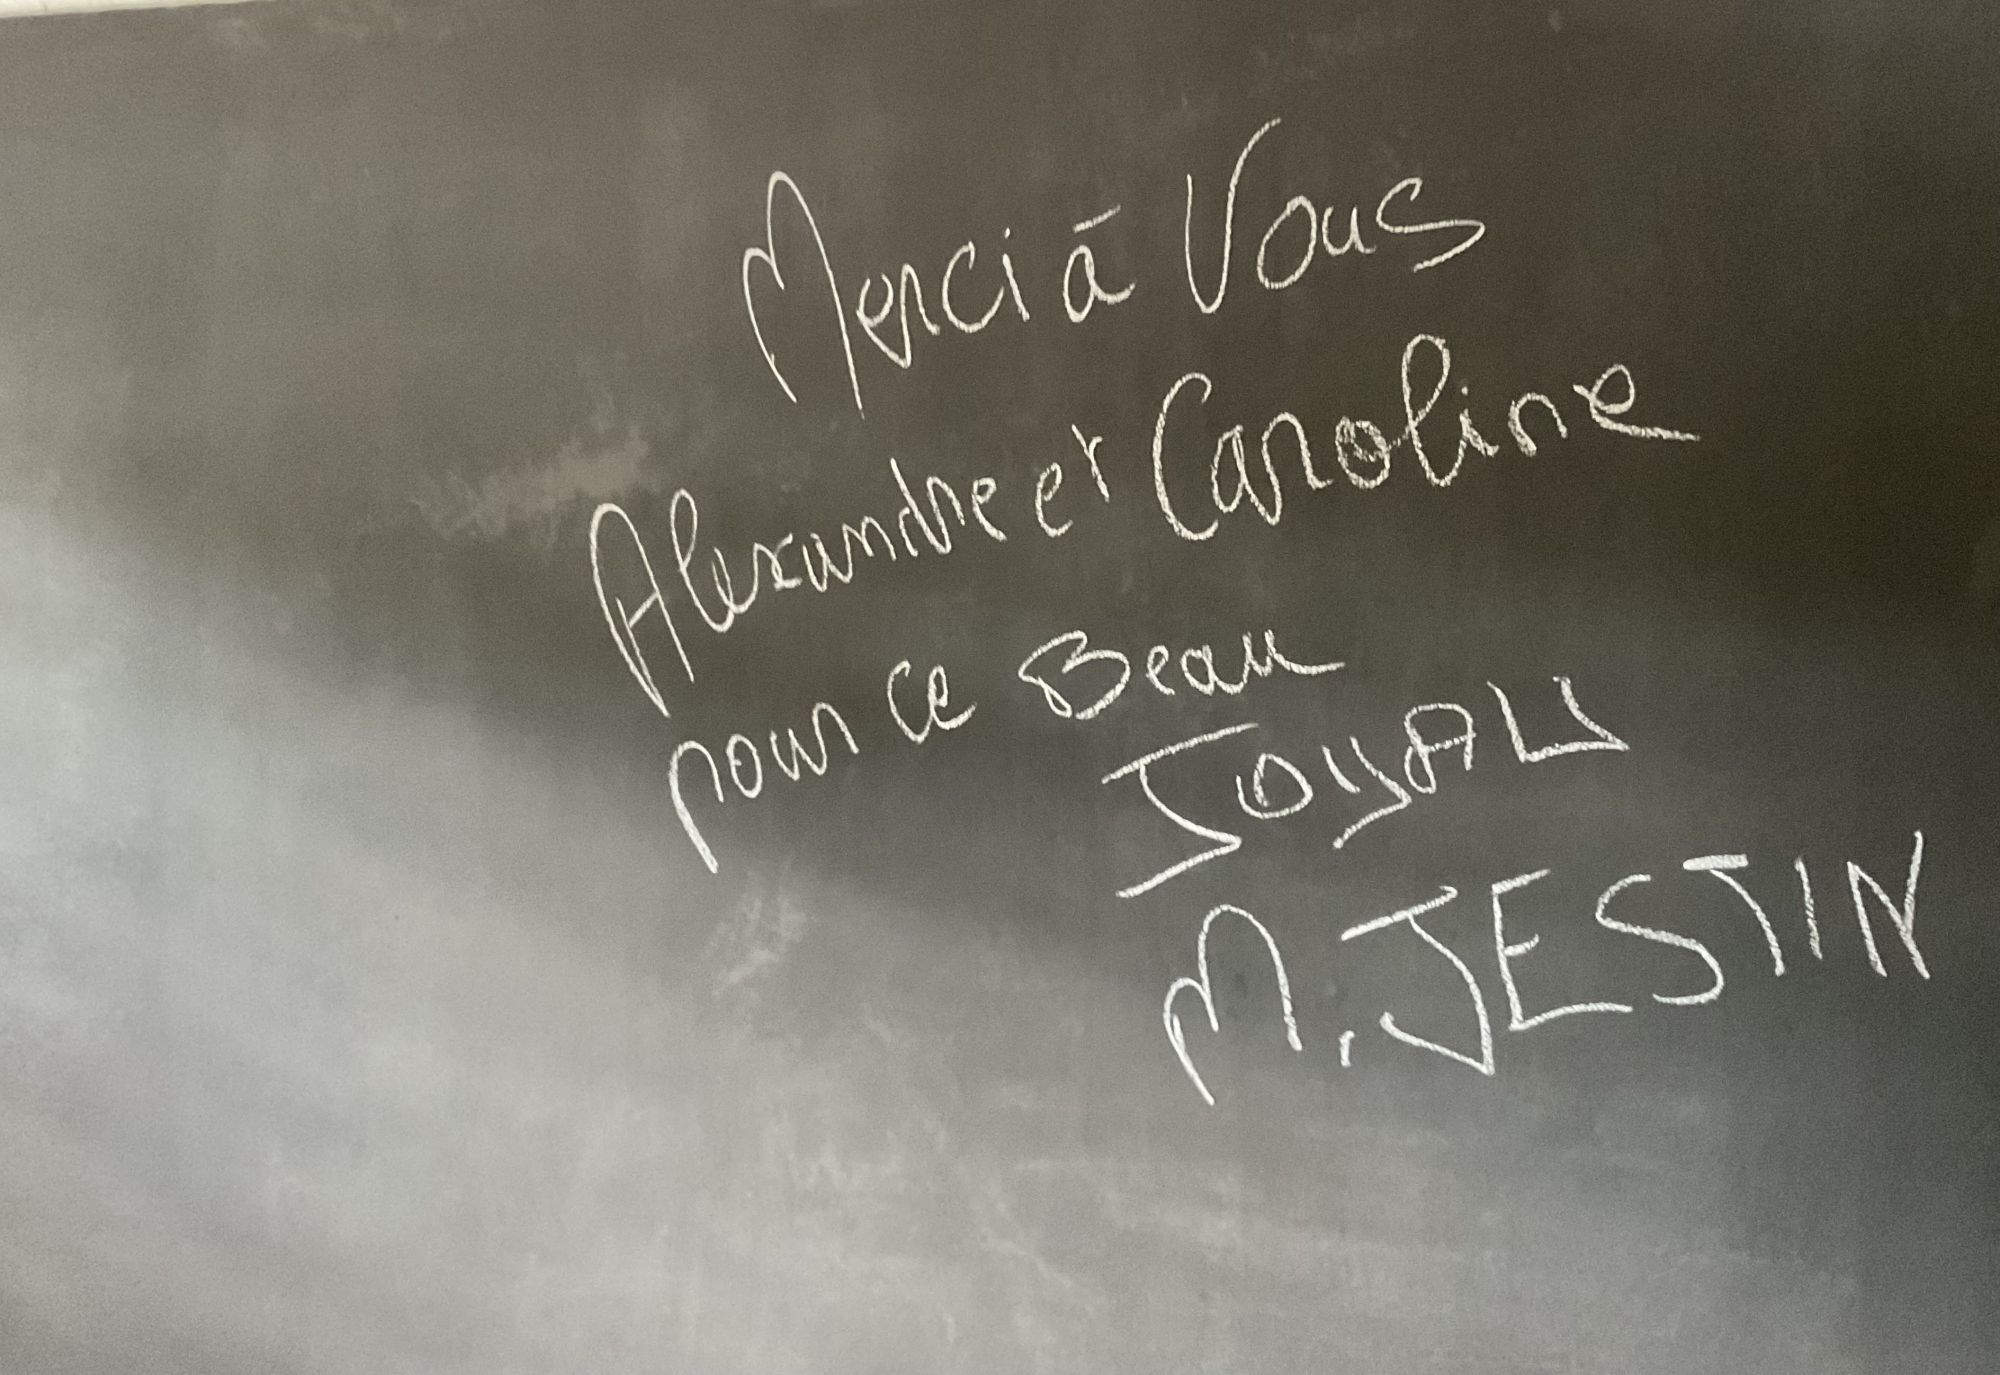 Merci à Vous
Alexandre et Caroline
pour ce Beau
JOYAU
M. JESTIN